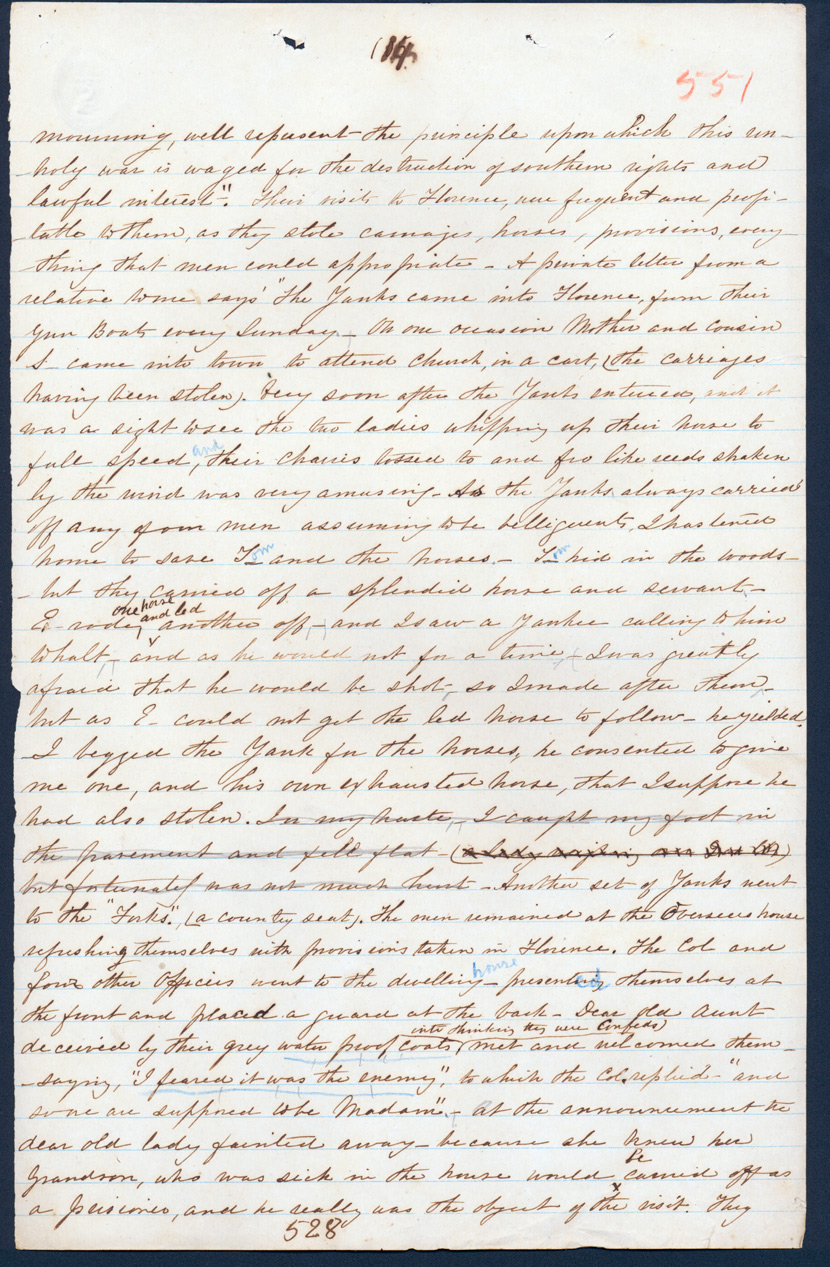 (14)
551
mourning, well represent the principle upon which this un-
-holy war is waged for the destruction of southern rights and
lawful interest". Their visits to Florence, were frequent and profi-
-table to them, as they stole carriages, horses, provisions, every
-thing that men could appropriate - A private letter from a
relative says "The Yanks came into Florence, from their
Gun Boats every Sunday - On one occasion Mother and cousin
S- came into town to attend church, in a cart, (the carriages
having been stolen). Very soon after the Yanks entered, and it
was a sight to see the two ladies whipping up their horse to
full speed, and their chairs tossed to and fro like reeds shaken
by the wind was very amusing - As the Yanks always carried
off any of our men assuming to be belligerents, I hastened
home to save Tom and the horses. - Tom hid in the woods -
- but they carried off a splendid horse and servant -
E- rode one horse and led another off, - and I saw a Yankee calling to him
to halt, - and as he would not for a time, - I was greatly
afraid that he would be shot, so I made after them,
but as E- could not get the led horse to follow - he yielded.
I begged the Yank for the horses, he consented to give
me one, and his own exhausted horse, that I suppose he
had also stolen. In my haste, I caught my foot in
the pavement and fell flat - (a lady
but fortunately was not much hurt - Another set of Yanks went
to the "Forks", (a country seat). The men remained at the Overseers house
refreshing themselves with provisions taken in Florence. The Col and
four other Officers went to the dwelling house - presented themselves at
the front and placed a guard at the back - Dear old Aunt
deceived by their grey water proof coats, (thinking they were Confeds) met and welcomed them -
- saying, "I feared it was the enemy", to which the Col. replied - "and
so we are supposed to be Madam" - at the announcement the
dear old lady fainted away - because she knew her
Grandson, who was sick in the house would be carried off as
a prisioner, and he really was the object of the visit. They
528